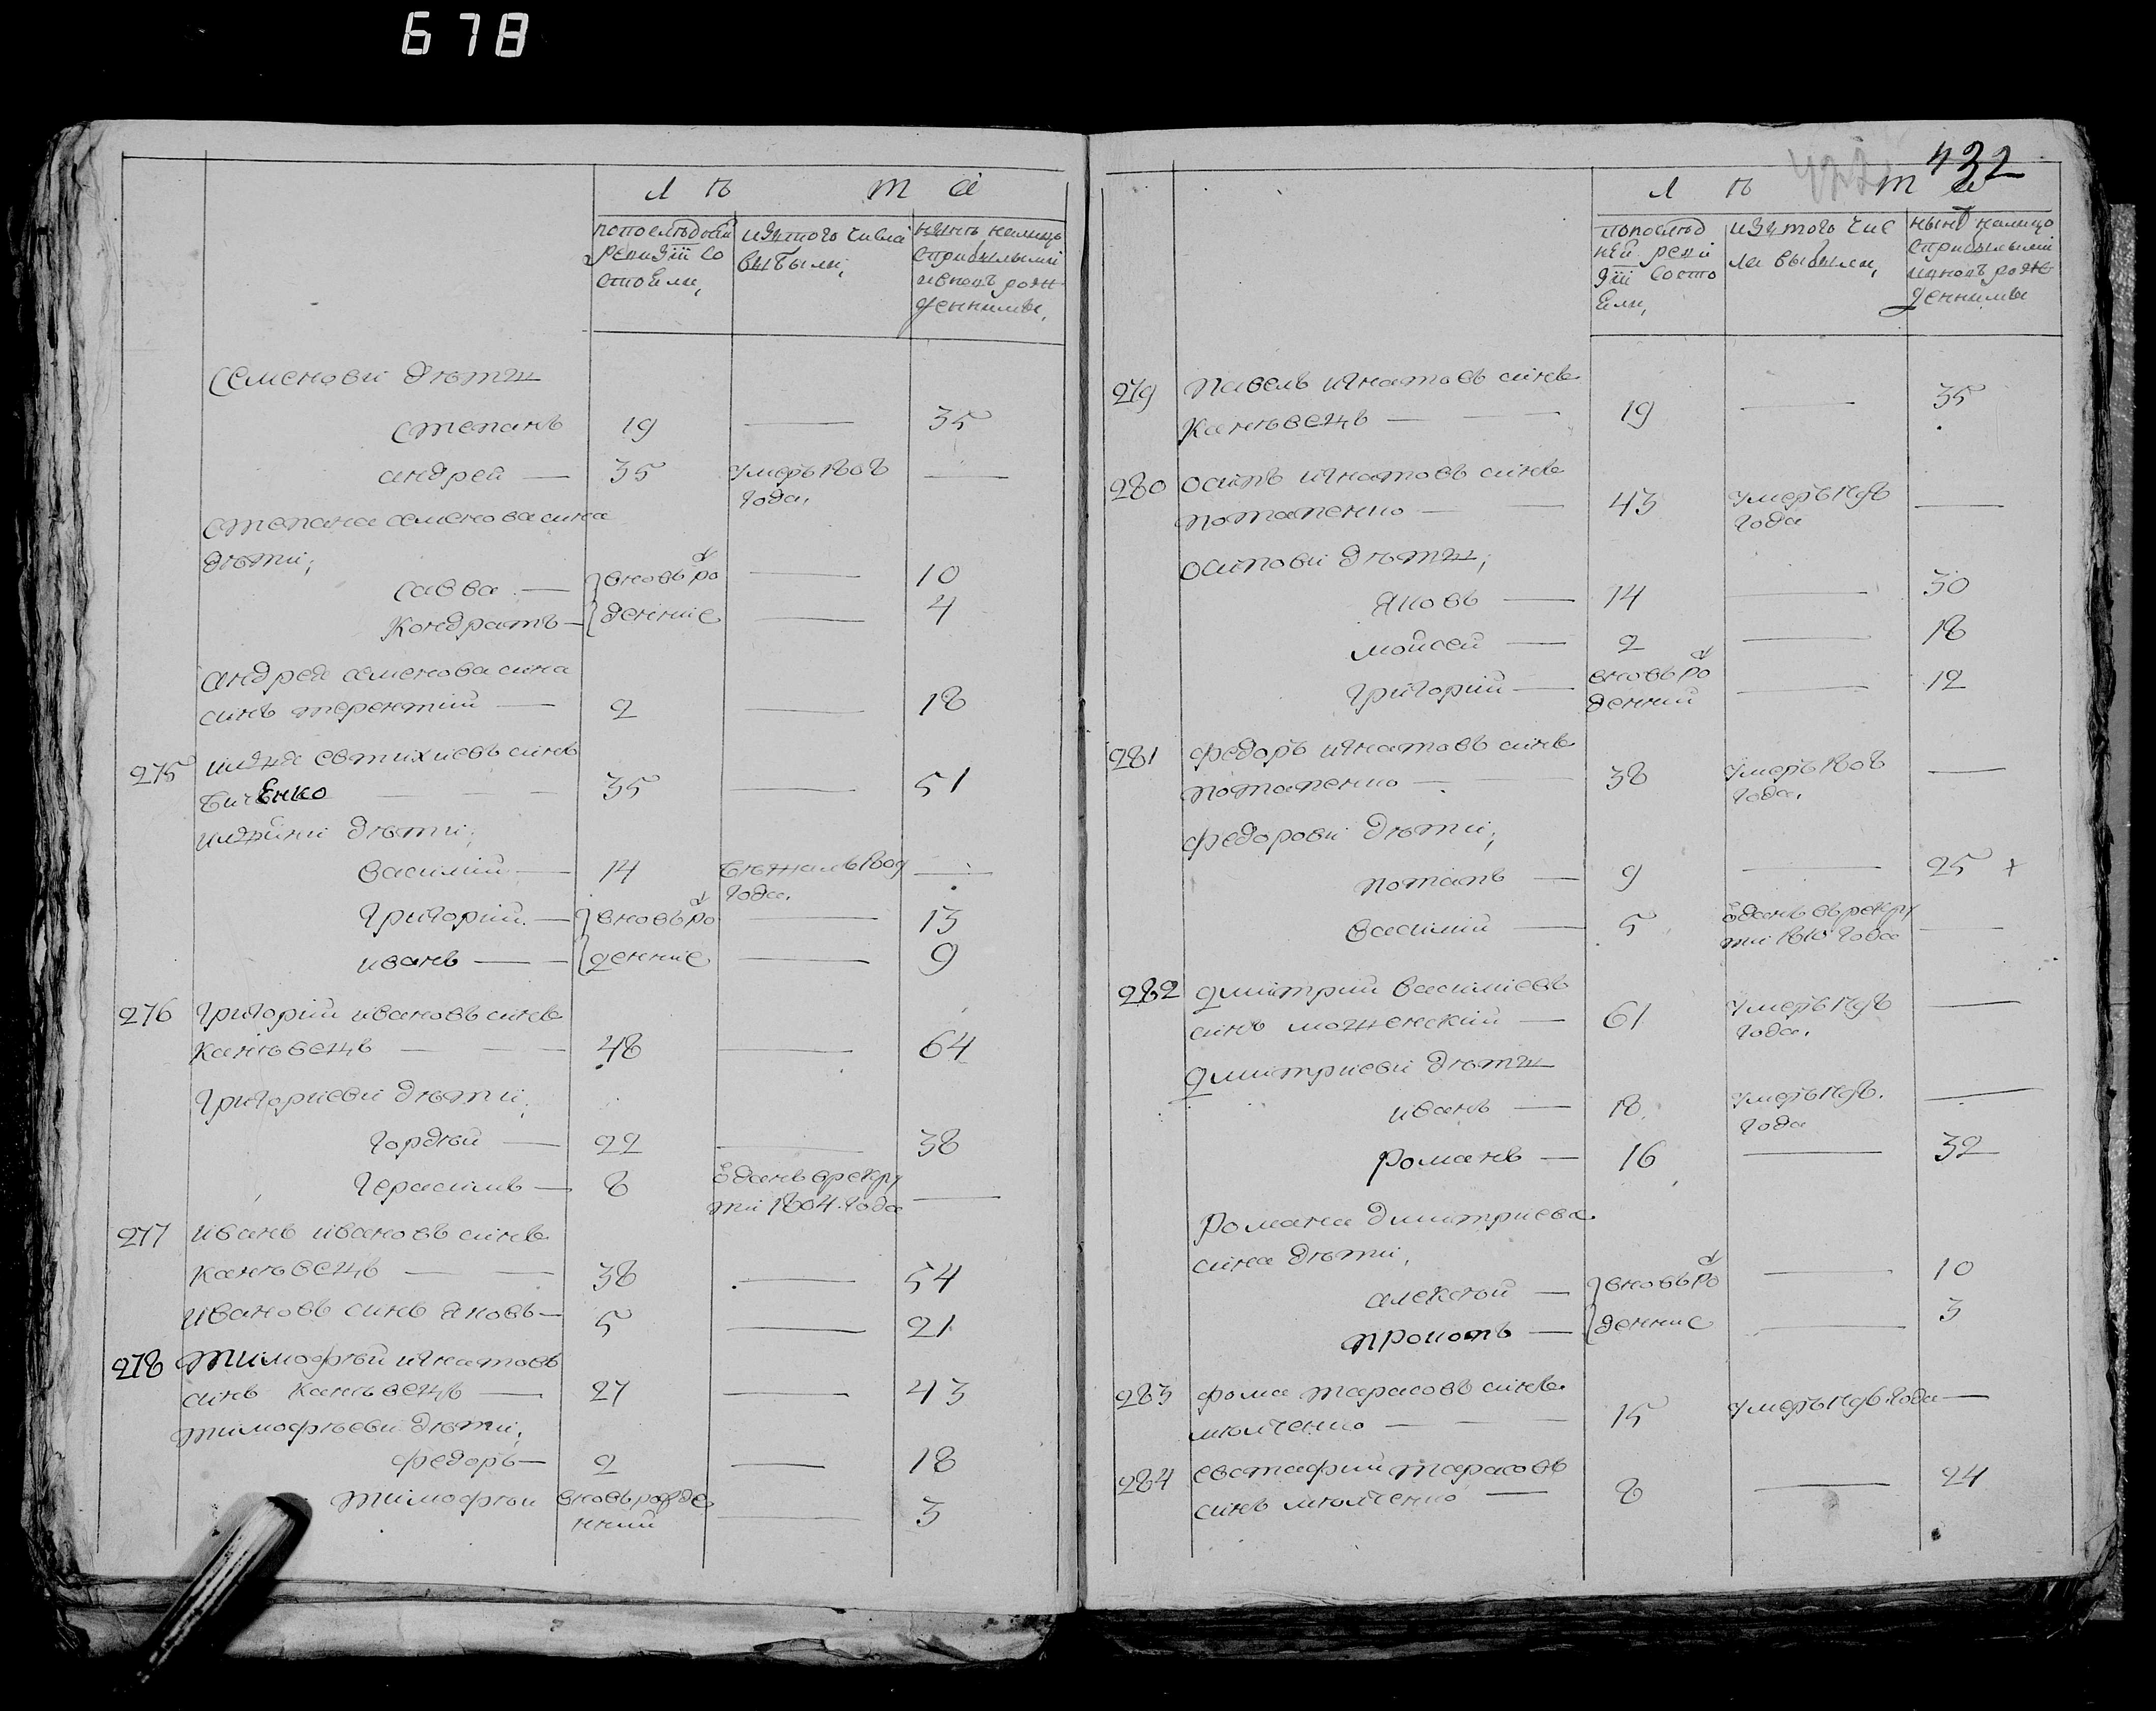 678
432
422
Лѣта
по последней
ревизіи со
стоѣли,
изъ того числа
выбыли,
нынѣ налицо
с прибылыми
и вновь рож
денными,
Семенови дѣти
степанъ 19 — 35
андрей — 35 умеръ 1808 —
года,
степана семенова сина
дѣти;
савва — вновь ро — 10
кондратъ — денніе — 4
андрея семенова сина
синъ терентий — 2 — 18
275 илля евтихіевъ синъ
Биченко — 35 — 51
иллини дѣти;
василий — 14 бѣжалъ 1809 —
года,
григорий — вновь ро — 13
иванъ — денніе — 9
276 григорий ивановъ синъ
канѣвецъ — 48 — 64
григориеви дѣти;
гордѣй — 22 — 38
герасимъ — 8 ѡданъ в рекру
ти 1804 года —
277 иванъ ивановъ синъ
канѣвецъ — 38 — 54
ивановъ синъ яковъ — 5 — 21
278 тимофѣй игнатовъ
синъ канѣвецъ — 27 — 43
тимофѣеви дѣти;
федоръ — 2 — 18
тимофѣй вновь рожде
нний — 3
Лѣта
по послед
ней реви
зіи состо
ѣли,
изъ того чис
ла выбыли,
нынѣ налицо
с прибылыми
и вновь рож
денными
279 павелъ игнатовъ синъ
канѣвецъ — 19 — 35
280 осипъ игнатовъ синъ
потапенко — 43 умеръ 1798 —
года
осипови дѣти;
яковъ — 14 — 30
мойсей — 2 — 18
григорий — вновь ро — 12
денний
281 федоръ игнатовъ синъ
потапенко — 38 умеръ 1808 —
года,
федорови дѣти;
потапъ — 9 — 25 +
василий — 5 ѡданъ в рекру
ти 1810 года —
282 дмитрий василіевъ
синъ — 61 умеръ 1798 —
года,
дмитриеви дѣти
иванъ — 18 умеръ 1798 —
года
романъ — 16 — 32
романа дмитриева
сина дѣти,
алексѣй — вновь ро — 10
прокопъ — денніе — 3
283 фома тарасовъ синъ
— 15 умеръ 1796 года —
284 евстафий тарасовъ
синъ — 8 — 24